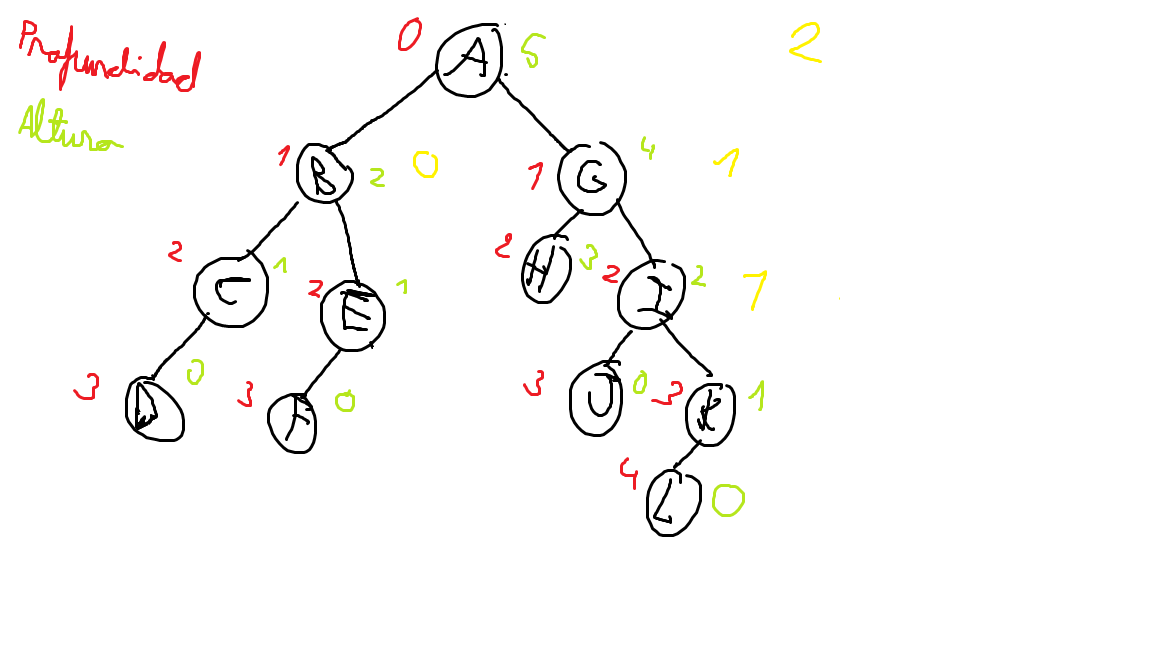 Profundidad
Altura
0 A 5 2
1 B 2 0 1 G 4 1
2 C 1 2 E 1 2 H 3 2 I 2 1
3 D 0 3 F 0 3 J 0 3 K 1
4 L 0